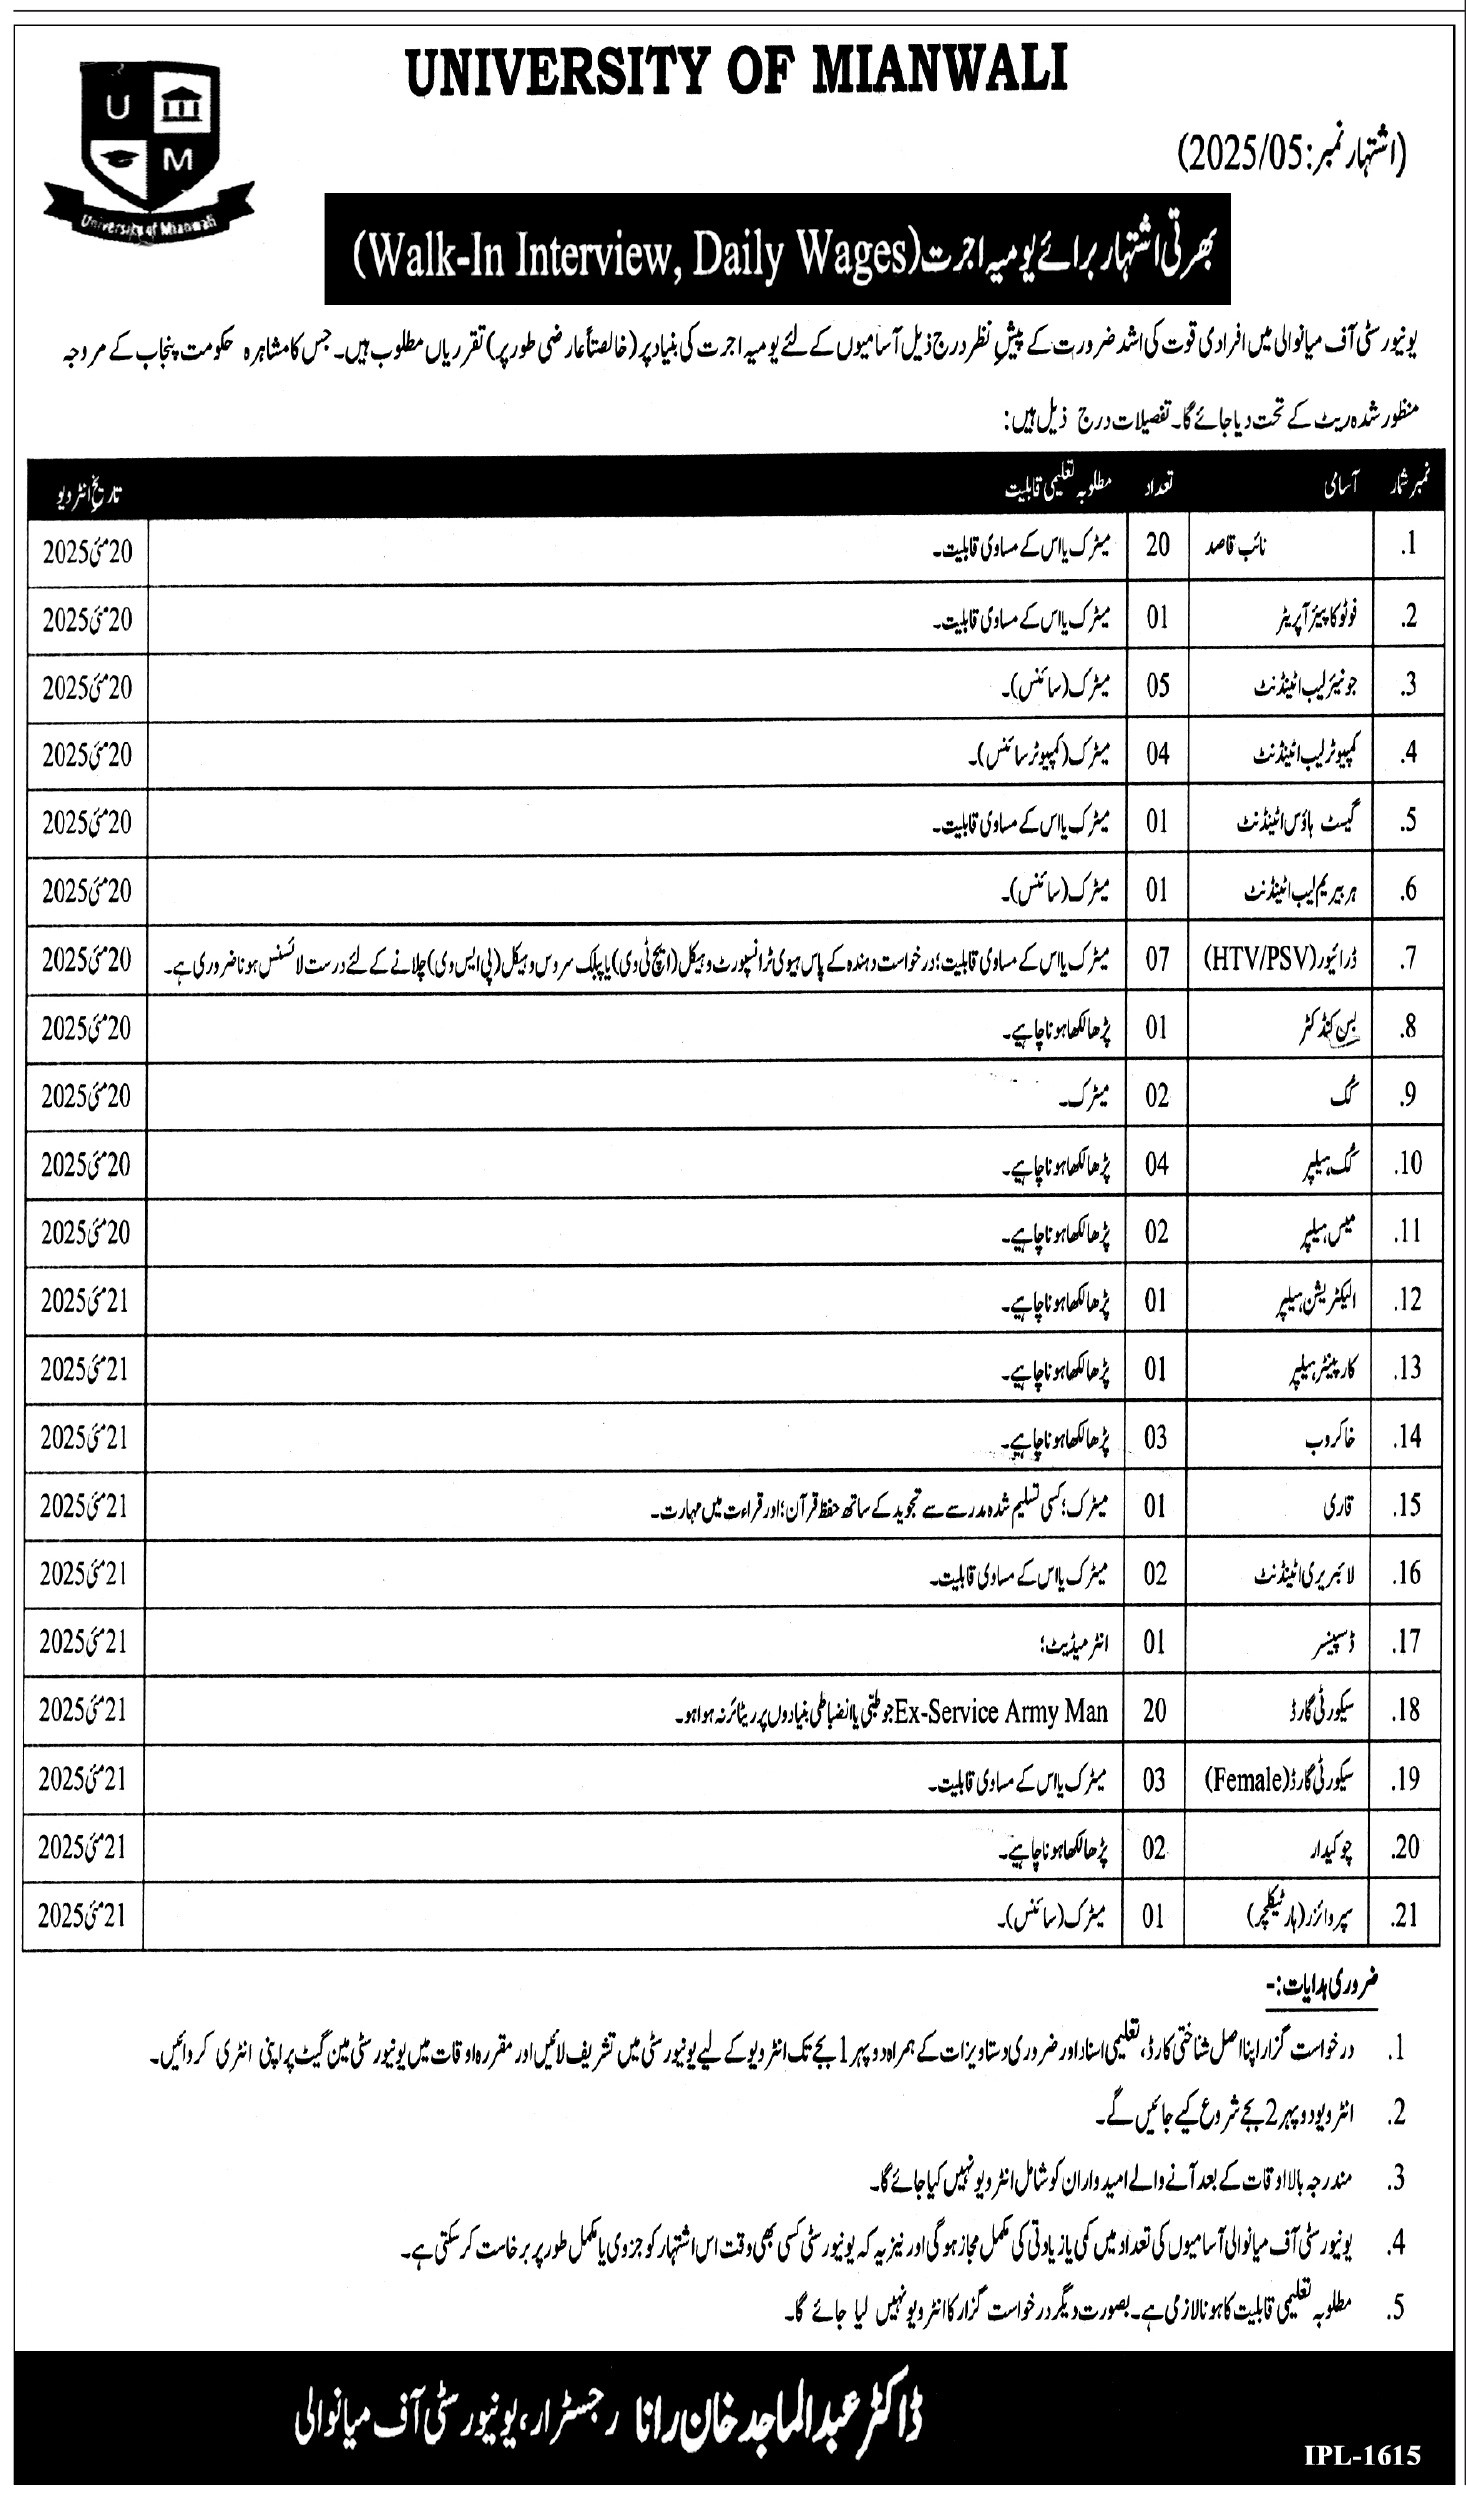 UNIVERSITY OF MIANWALI
U
M
University of Mianwali
(اشتہار نمبر: 2025/05)
بھرتی اشتہار برائے یومیہ اجرت (Walk-In Interview, Daily Wages)
یونیورسٹی آف میانوالی میں افرادی قوت کی اشد ضرورت کے پیشِ نظر درج ذیل آسامیوں کے لئے یومیہ اجرت کی بنیاد پر (خالصتاً عارضی طور پر) تقرریاں مطلوب ہیں۔ جس کا مشاہرہ حکومت پنجاب کے مروجہ
منظور شدہ ریٹ کے تحت دیا جائے گا۔ تفصیلات درج ذیل ہیں:
نمبر شمار آسامی تعداد مطلوبہ تعلیمی قابلیت تاریخ انٹرویو
1. نائب قاصد 20 میٹرک یا اس کے مساوی قابلیت۔ 20 مئی 2025
2. فوٹو کاپیئر آپریٹر 01 میٹرک یا اس کے مساوی قابلیت۔ 20 مئی 2025
3. جونیئر لیب اٹینڈنٹ 05 میٹرک (سائنس)۔ 20 مئی 2025
4. کمپیوٹر لیب اٹینڈنٹ 04 میٹرک (کمپیوٹر سائنس)۔ 20 مئی 2025
5. گیسٹ ہاؤس اٹینڈنٹ 01 میٹرک یا اس کے مساوی قابلیت۔ 20 مئی 2025
6. ہربیریم لیب اٹینڈنٹ 01 میٹرک (سائنس)۔ 20 مئی 2025
7. ڈرائیور (HTV/PSV) 07 میٹرک یا اس کے مساوی قابلیت؛ درخواست دہندہ کے پاس ہیوی ٹرانسپورٹ وہیکل (ایچ ٹی وی) یا پبلک سروس وہیکل (پی ایس وی) چلانے کے لئے درست لائسنس ہونا ضروری ہے۔ 20 مئی 2025
8. بس کنڈکٹر 01 پڑھا لکھا ہونا چاہیے۔ 20 مئی 2025
9. کُک 02 میٹرک۔ 20 مئی 2025
10. کُک ہیلپر 04 پڑھا لکھا ہونا چاہیے۔ 20 مئی 2025
11. میس ہیلپر 02 پڑھا لکھا ہونا چاہیے۔ 20 مئی 2025
12. الیکٹریشن ہیلپر 01 پڑھا لکھا ہونا چاہیے۔ 21 مئی 2025
13. کارپینٹر ہیلپر 01 پڑھا لکھا ہونا چاہیے۔ 21 مئی 2025
14. خاکروب 03 پڑھا لکھا ہونا چاہیے۔ 21 مئی 2025
15. قاری 01 میٹرک؛ کسی تسلیم شدہ مدرسے سے تجوید کے ساتھ حفظ قرآن؛ اور قراءت میں مہارت۔ 21 مئی 2025
16. لائبریری اٹینڈنٹ 02 میٹرک یا اس کے مساوی قابلیت۔ 21 مئی 2025
17. ڈسپنسر 01 انٹرمیڈیٹ؛ 21 مئی 2025
18. سیکورٹی گارڈ 20 Ex-Service Army Man جو طبّی یا انضباطی بنیادوں پر ریٹائر نہ ہوا ہو۔ 21 مئی 2025
19. سیکورٹی گارڈ (Female) 03 میٹرک یا اس کے مساوی قابلیت۔ 21 مئی 2025
20. چوکیدار 02 پڑھا لکھا ہونا چاہیے۔ 21 مئی 2025
21. سپروائزر (ہارٹیکلچر) 01 میٹرک (سائنس)۔ 21 مئی 2025
ضروری ہدایات:-
1. درخواست گزار اپنا اصل شناختی کارڈ، تعلیمی اسناد اور ضروری دستاویزات کے ہمراہ دوپہر 1 بجے تک انٹرویو کے لیے یونیورسٹی میں تشریف لائیں اور مقررہ اوقات میں یونیورسٹی مین گیٹ پر اپنی انٹری کروائیں۔
2. انٹرویو دوپہر 2 بجے شروع کیے جائیں گے۔
3. مندرجہ بالا اوقات کے بعد آنے والے امیدواران کو شامل انٹرویو نہیں کیا جائے گا۔
4. یونیورسٹی آف میانوالی آسامیوں کی تعداد میں کمی یا زیادتی کی مکمل مجاز ہوگی اور نیز یہ کہ یونیورسٹی کسی بھی وقت اس اشتہار کو جزوی یا مکمل طور پر برخاست کر سکتی ہے۔
5. مطلوبہ تعلیمی قابلیت کا ہونا لازی ہے۔ بصورت دیگر درخواست گزار کا انٹرویو نہیں لیا جائے گا۔
ڈاکٹر عبدالماجد خان رانا رجسٹرار، یونیورسٹی آف میانوالی
IPL-1615